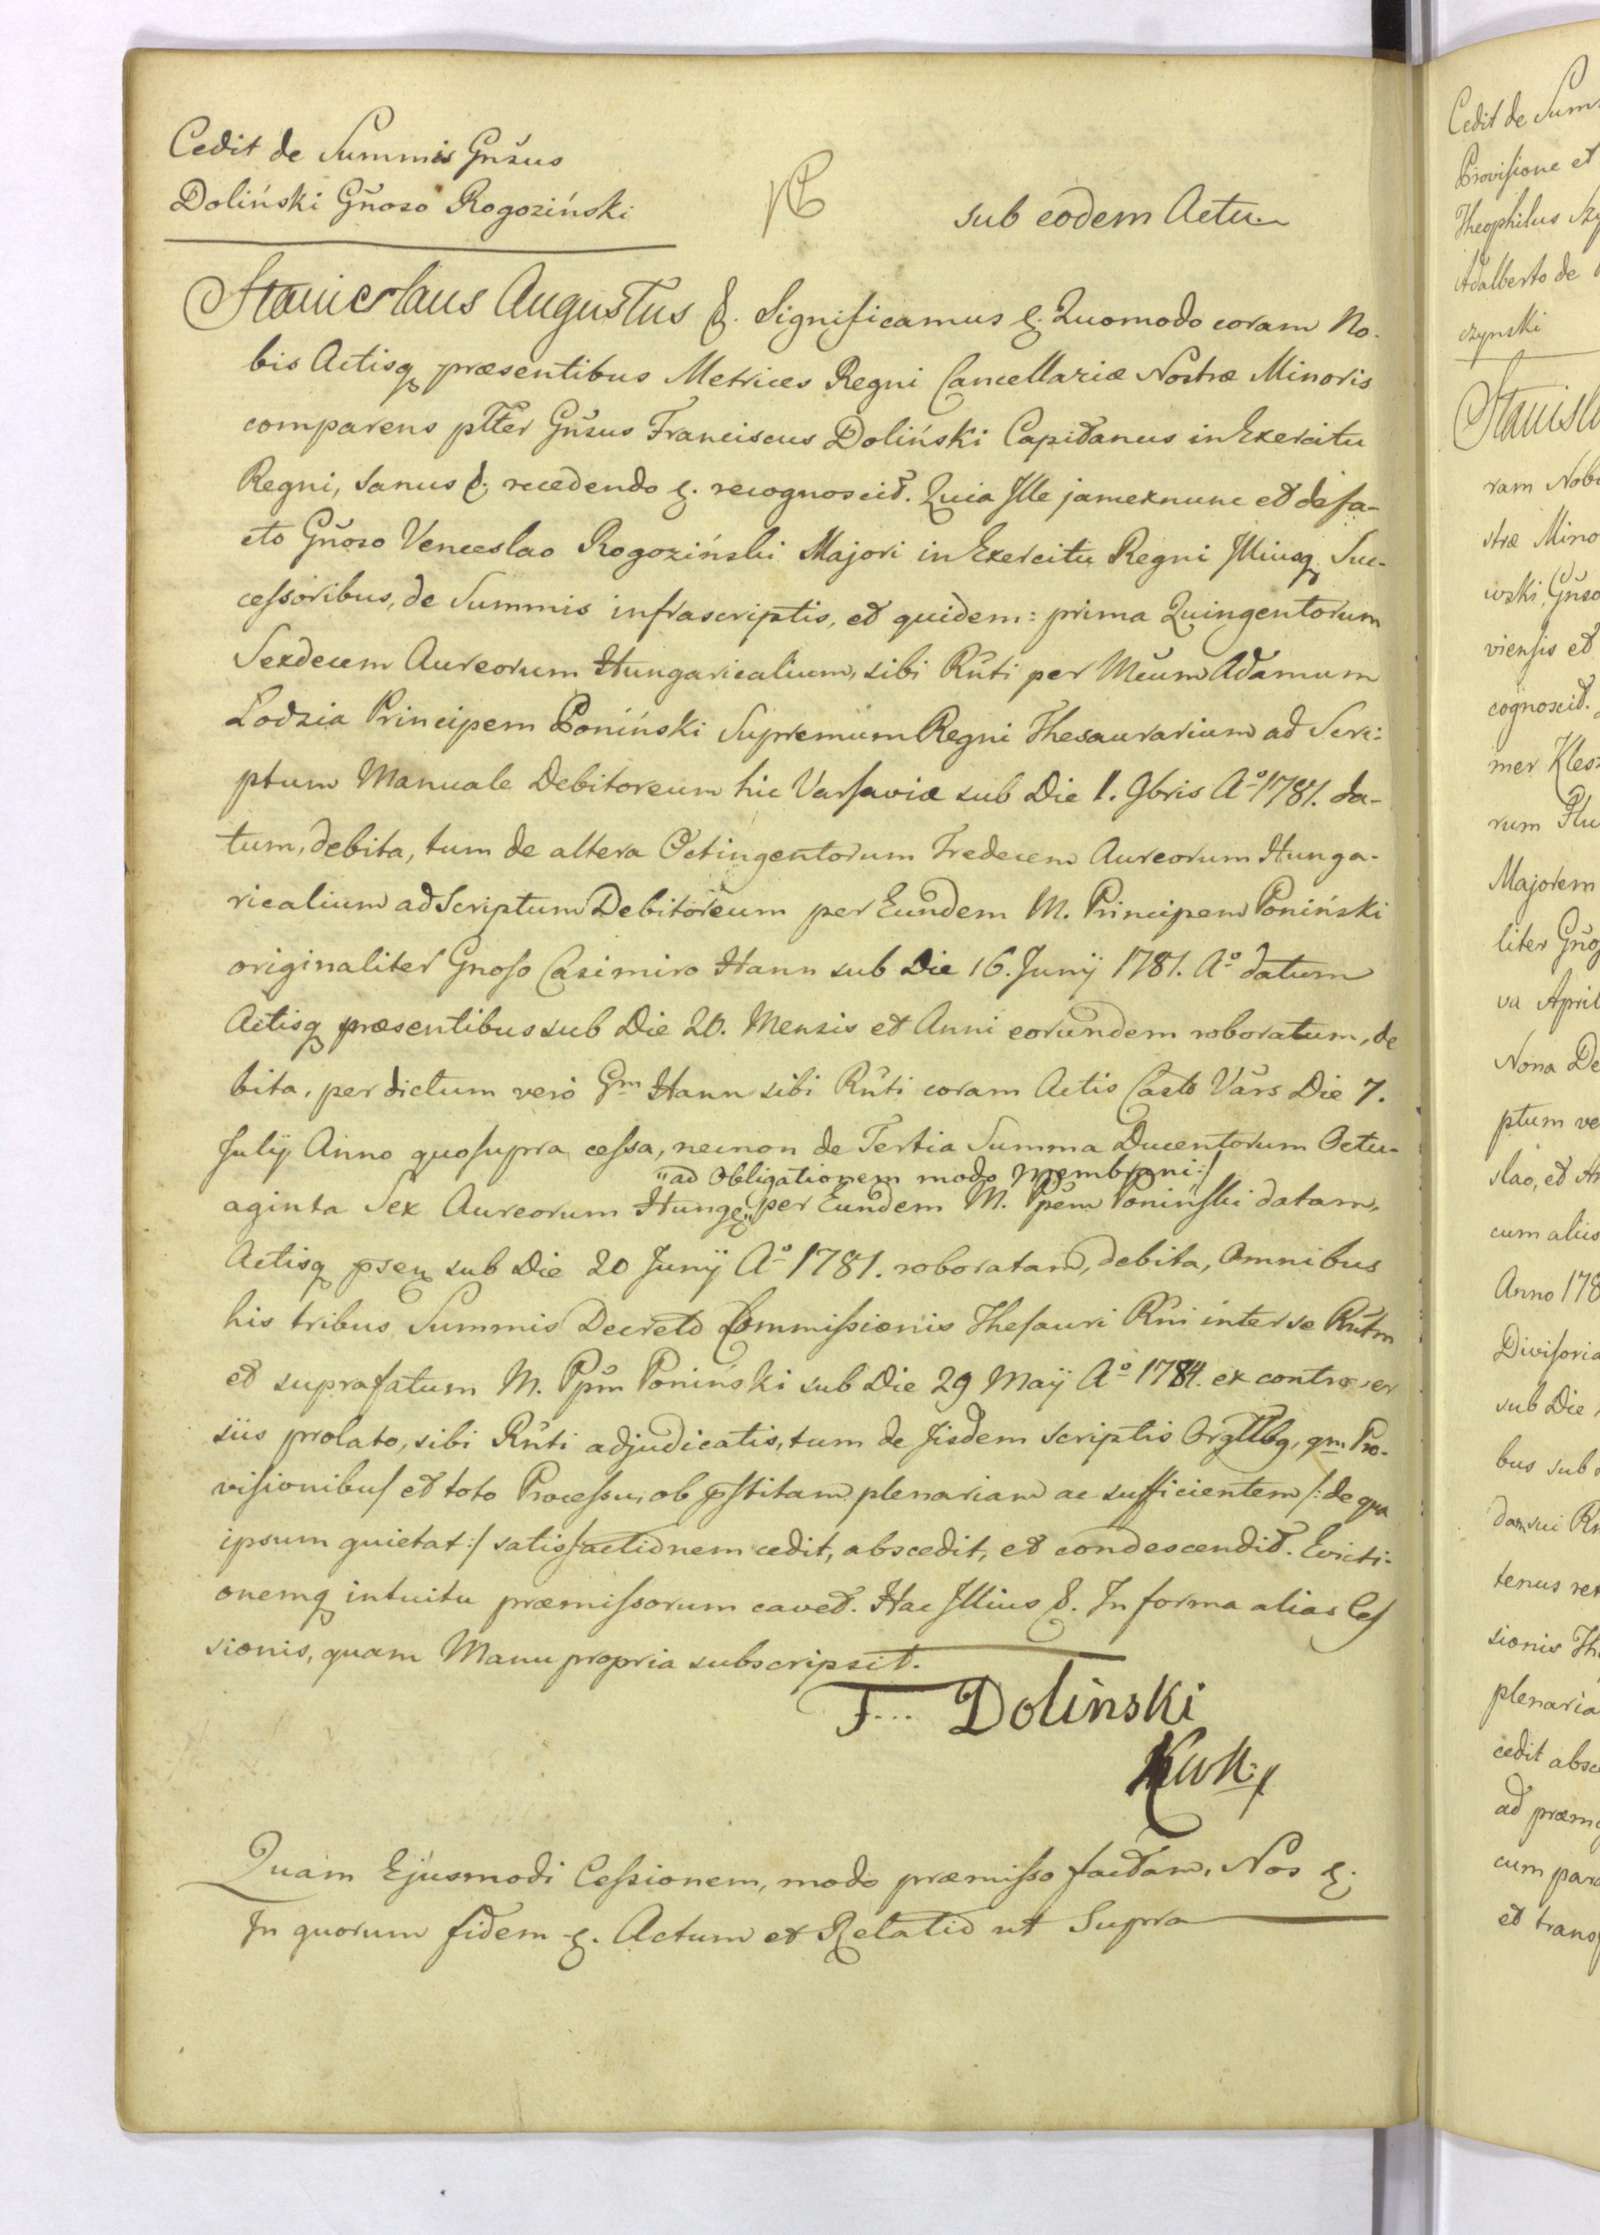 Cedit de Summis Gnsus
Doliński Gnoso Rogoziński
sub eodem Actu
Stanislaus Augustus &. Significamus &. Quomodo coram No-
bis Actisq præsentibus Metrices Regni Cancellariæ Nostræ Minoris
comparens pltter Gnsus Franciscus Doliński Capitaneus in Exercitu
Regni, sanus &. recedendo &. recognoscit. Quia Ille jam exnunc et defa-
cto Gnoso Venceslao Rogoziński Majori in Exercitu Regni Illiusq Suc-
cessoribus, de Summis infrascriptis, et quidem: prima Quingentorum
Sexdecem Aureorum Hungaricalium, sibi Rnti per Mcum Adamum
Lodzia Principem Poniński Supremum Regni Thesaurarium ad Scri-
ptum Manuale Debitoreum hic Varsaviæ sub Die 1. 9bris Aº 1781. da-
tum, debita, tum de altera Octingentorum Tredecem Aureorum Hunga-
ricalium ad Scriptum Debitoreum per Eundem M. Principem Poniński
originaliter Gnoso Casimiro Hann sub Die 16. Junij 1781. Aº datum
Actisq præsentibus sub Die 20. Mensis et Anni eorundem roboratum, de
bita, per dictum vero Gm Hann sibi Rnti coram Actis Castr Vars Die 7.
Julij Anno quo supra cessa, necnon de Tertia Summa Ducentorum Octu-
"ad Obligationem modo Membrani:/
aginta Sex Aureorum Hung per Eundem M. Ppem Poniński datam,
Actisq psen sub Die 20 Junij Aº 1781. roboratam, debita, Omnibus
his tribus Summis Decreto Commissionis Thesauri Rni inter se Rntm
et suprafatum M. Ppm Poniński sub Die 29 Maij Aº 1784. ex controver
siis prolato, sibi Rnti adjudicatis, tum de Iisdem scriptis qm Pro-
visionibus et toto Processu, ob pstitam plenariam ac sufficientem /: de qua
ipsum quietat :/ satisfactionem cedit, abscedit, et condescendit. Evicti-
onemq intuitu præmissorum cavet. Hac Illius &. In forma alias Ces
sionis, quam Manu propria subscripsit.
F... Doliński
Quam Ejusmodi Cessionem, modo præmisso factam, Nos &.
In quorum fidem &. Actum et Relatio ut Supra
Cedit de Sum
Provisione et
Theophilus Szy
Adalberto de
czynski
Stanisl
ram Nobi
stræ Mino
wski, Gnso
viensis et
cognoscit.
mer Klesz
rum Flu
Majorem
liter Gnos
va April
Nona De
ptum ve
slao, et An
cum aliis
Anno 178
Divisoria
sub Die
bus sub
tenus re
sionis Th
plenaria
cedit absc
ad præm
cum para
et trans